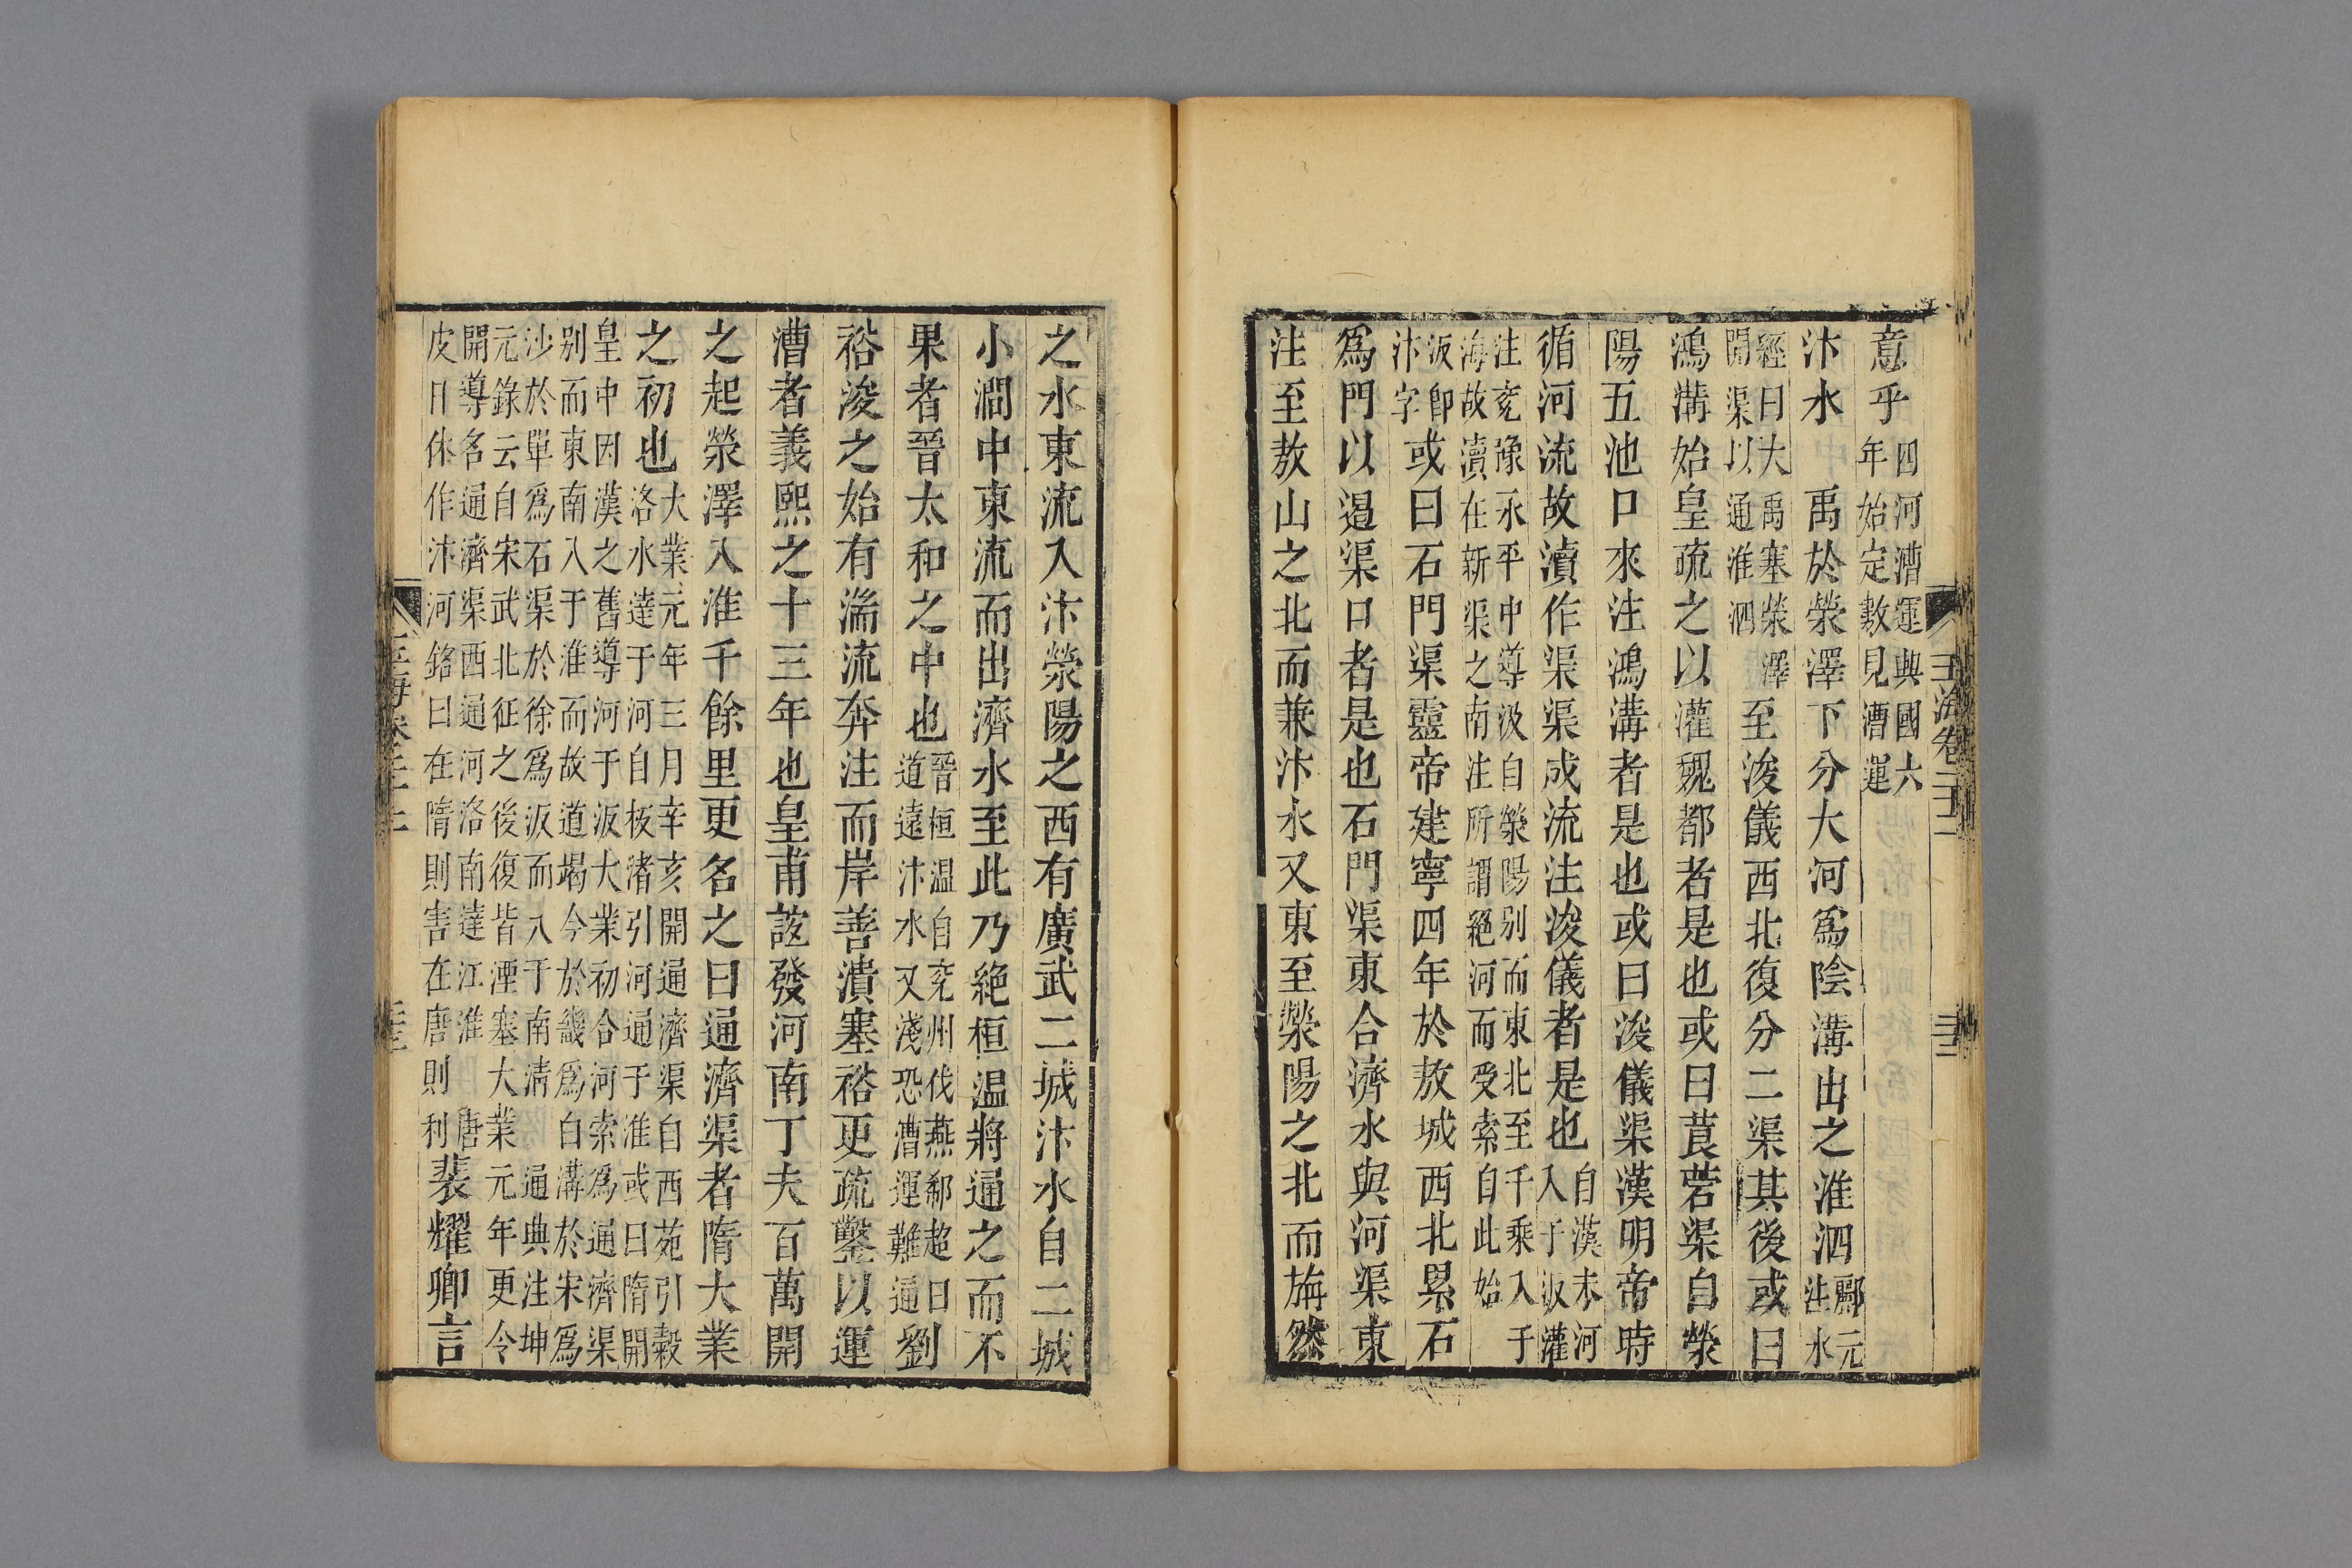 玉海卷二十
意乎四河漕運興國六年始定數見漕運
汴水　禹於滎澤下分大河爲陰溝出之淮泗酈元注水
經曰大禹塞滎澤開渠以通淮泗至浚儀西北復分二渠其後或曰
鴻溝始皇疏之以灌魏都者是也或曰莨菪渠自滎
陽五池口來注鴻溝者是也或曰浚儀渠漢明帝時
循河流故瀆作渠渠成流注浚儀者是也自漢末河入于汳灌
注兗豫永平中導汲自滎陽別而東北至千乘入于海故瀆在新渠之南注所謂絕河而受索自此始
汳卽汴字或曰石門渠靈帝建寧四年於敖城西北累石
爲門以遏渠口者是也石門渠東合濟水與河渠東
注至敖山之北而兼汴水又東至滎陽之北而旃然
之水東流入汴滎陽之西有廣武二城汴水自二城
小澗中東流而出濟水至此乃絕桓温將通之而不
果者晉太和之中也晉桓温自兗州伐燕郗超曰道遠汴水又淺恐漕運難通劉
裕浚之始有湍流奔注而岸善潰塞裕更疏鑿以運
漕者義熙之十三年也皇甫誼發河南丁夫百萬開
之起滎澤入淮千餘里更名之曰通濟渠者隋大業
之初也大業元年三月辛亥開通濟渠自西苑引穀洛水達于河自板渚引河通于淮或曰隋開
皇中因漢之舊導河于汳大業初合河索爲通濟渠別而東南入于淮而故道竭今於畿爲白溝於宋爲
沙於單爲石渠於徐爲汳而入于南清　通典注坤元錄云自宋武北征之後復皆湮塞大業元年更令
開導名通濟渠西通河洛南達江淮　唐皮日休作汴河銘曰在隋則害在唐則利裴耀卿言